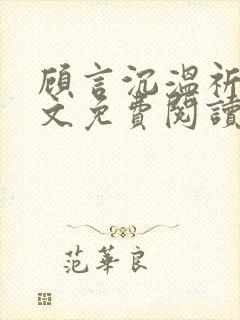 顾言沉溫祈
文免費閱讀
范華良